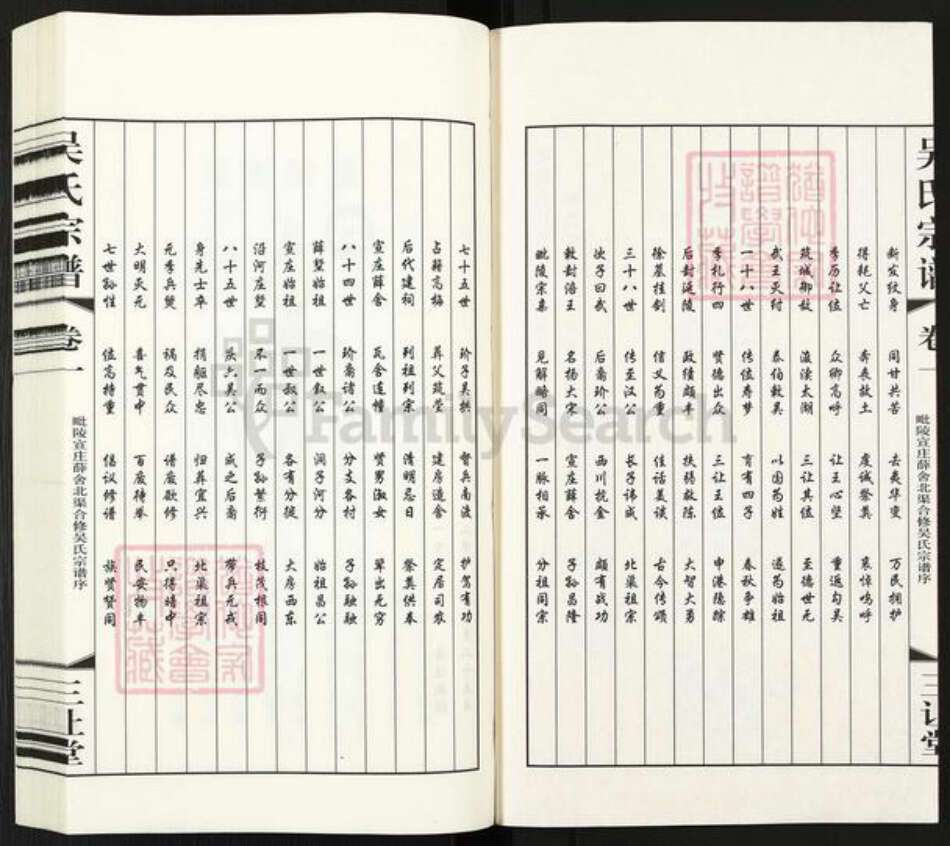 吴氏宗谱 卷一
毗陵宣庄薛舍北渠合修吴氏宗谱序
三让堂
断发纹身 同甘共苦 去夷华变 万民拥护
得耗父亡 奔丧故土 虔诚祭奠 哀悼鸣呼
季历让位 众卿高呼 让王心坚 重返勾吴
筑城御敌 渎渎太湖 三让其位 至德世无
武王灭纣 泰伯敕吴 以国为姓 遂为始祖
一十八世 传位寿梦 育有四子 春秋争雄
季札行四 贤德出众 三让王位 申港隐踪
后封延陵 政绩颇丰 扶弱救陈 大智大勇
徐墓挂剑 信义为重 佳话美谈 古今传颂
三十八世 传至汉公 长子讳咸 北渠祖宗
次子曰武 后裔玠公 西川抗金 颇有战功
敕封涪王 名扬大宋 宣庄薛舍 子孙昌隆
毗陵宗亲 见解略同 一脉相承 分祖同宗
七十五世 玠子吴拱 督兵南渡 护驾有功
占籍高梅 葬父筑茔 建房造舍 定居司农
后代建祠 列祖列宗 清明忌日 祭奠供奉
宣庄薛舍 瓦舍连幢 贤男淑女 辈出无穷
八十四世 玠裔诸公 分支各村 子孙融融
薛墅始祖 一世叙公 洞子河分 始祖昌公
宣庄始祖 一世叔公 各有分徙 大房西东
沿河庄墅 不一而众 子孙繁衍 枝茂根同
八十五世 茨六吴公 咸之后裔 带兵元戎
身先士卒 捐躯尽忠 归葬宜兴 北渠祖宗
元季兵燹 祸及民众 谱废欲修 只得暗中
大明灭元 喜气贯中 百废待举 民安物丰
七世孙性 位高持重 倡议修谱 族贤赞同
吴氏宗谱 卷一
毗陵宣庄薛舍北渠合修吴氏宗谱序
三让堂
FamilySearch